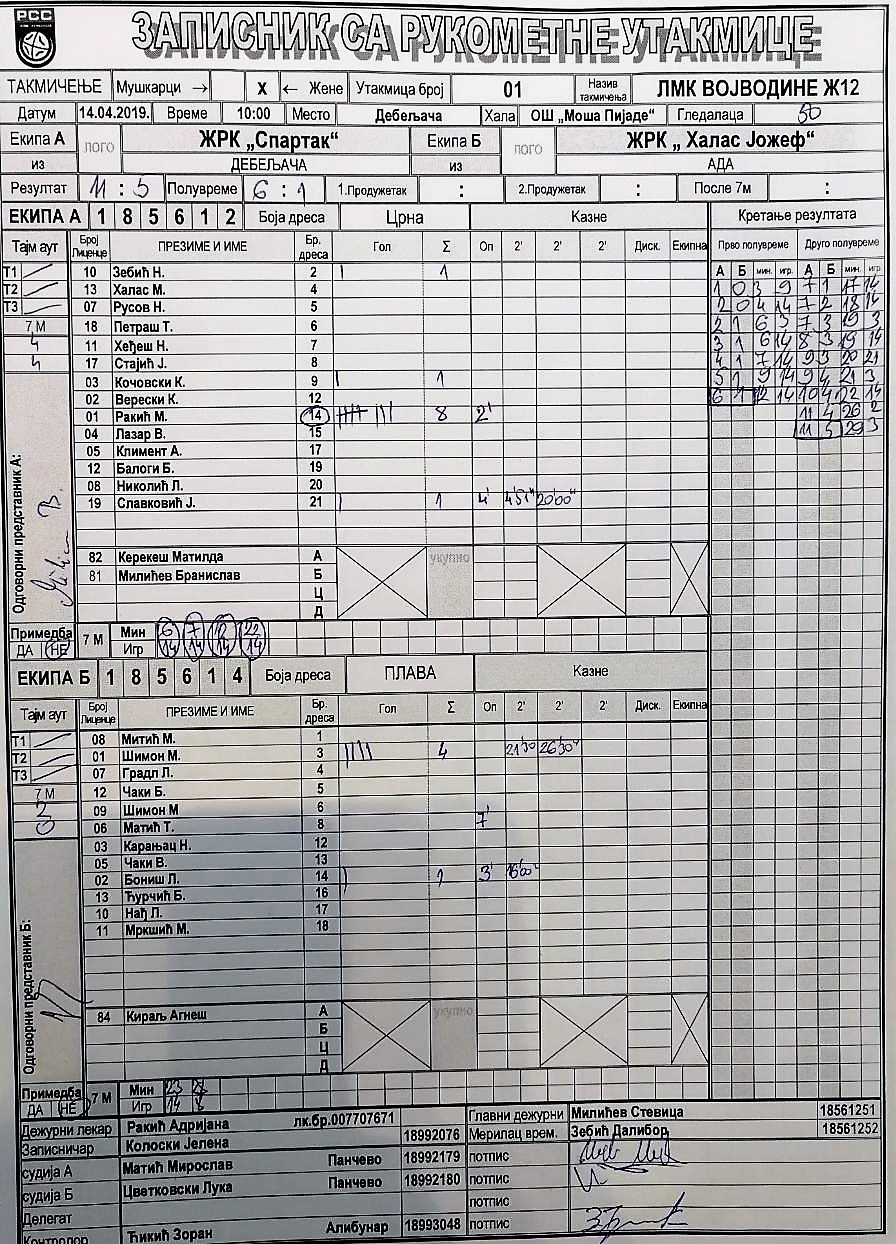 РСС
ЗАПИСНИК СА РУКОМЕТНЕ УТАКМИЦЕ
ТАКМИЧЕЊЕ Мушкарци → X ← Жене Утакмица број 01 Назив такмичења ЛМК ВОЈВОДИНЕ Ж12
Датум 14.04.2019. Време 10:00 Место Дебељача Хала ОШ „Моша Пијаде“ Гледалаца 50
Екипа А ЛОГО ЖРК „Спартак“ Екипа Б ЛОГО ЖРК „ Халас Јожеф“
из ДЕБЕЉАЧА из АДА
Резултат 11 : 5 Полувреме 6 : 1 1.Продужетак : 2.Продужетак : После 7м :
ЕКИПА А 1 8 5 6 1 2 Боја дреса Црна Казне Кретање резултата
Тајм аут Број Лиценце ПРЕЗИМЕ И ИМЕ Бр. дреса Гол Σ Оп 2' 2' 2' Диск. Екипна Прво полувреме Друго полувреме
А Б мин. игр. А Б мин. игр.
Т1 10 Зебић Н. 2 | 1
Т2 13 Халас М. 4
Т3 07 Русов Н. 5
7 М 18 Петраш Т. 6
4 11 Хеђеш Н. 7
4 17 Стајић Ј. 8
03 Кочовски К. 9 | 1
02 Верески К. 12
01 Ракић М. 14 |||| ||| 8 2'
04 Лазар В. 15
05 Климент А. 17
12 Балоги Б. 19
08 Николић Л. 20
19 Славковић Ј. 21 | 1 4' 4'51" 20'00"
1 0 3 9 7 1 17 14
2 0 4 14 7 2 18 14
2 1 6 3 7 3 19 3
3 1 6 14 8 3 19 14
4 1 7 14 9 3 20 21
5 1 9 14 9 4 21 3
6 1 12 14 10 4 22 14
11 4 26 2
11 5 29 3
Одговорни представник А:
82 Керекеш Матилда А укупно
81 Милићев Бранислав Б
Ц
Д
Примедба 7 М Мин 6 7 12 22
ДА НЕ Игр 14 14 14 14
ЕКИПА Б 1 8 5 6 1 4 Боја дреса ПЛАВА Казне
Тајм аут Број Лиценце ПРЕЗИМЕ И ИМЕ Бр. дреса Гол Σ Оп 2' 2' 2' Диск. Екипна
Т1 08 Митић М. 1
Т2 01 Шимон М. 3 |||| 4 21'30 26'30"
Т3 07 Градл Л. 4
7 М 12 Чаки Б. 5
2 09 Шимон М 6
0 06 Матић Т. 8 7'
03 Карањац Н. 12
05 Чаки В. 13
02 Бониш Л. 14 | 1 3' 16'00"
13 Ћурчић Б. 16
10 Нађ Л. 17
11 Мркшић М. 18
Одговорни представник Б:
84 Кираљ Агнеш А укупно
Б
Ц
Д
Примедба 7 М Мин 23
ДА НЕ Игр 14 8
Дежурни лекар Ракић Адријана лк.бр.007707671 Главни дежурни Милићев Стевица 18561251
Записничар Колоски Јелена 18992076 Мерилац врем. Зебић Далибор 18561252
судија А Матић Мирослав Панчево 18992179 потпис
судија Б Цветковски Лука Панчево 18992180 потпис
Делегат потпис
Контролор Ћикић Зоран Алибунар 18993048 потпис